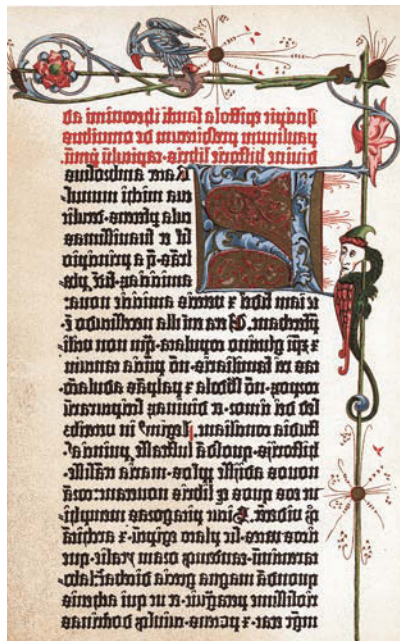 Incipit epistola sancti iheronimi ad
paulinum presbiterum de omnibus
divine historie libris· capitulū p̄mū.
Frater ambrosius
tua michi munus
cula pferens· detulit
sil̄ et suavissimas
lr̄as· q̄ a principio
amiciciaꝝ· fidē pba
te iam fidei ⁊ veteris amicicie novā:
pferebant. Vera em̄ illa necessitudo ē·
⁊ xp̄i glutino copulata· qm̄ non utili
tas rei familiaris· nō pn̄tia tantum
corpoꝝ· nō s̄bdola ⁊ palpās adulatō·
sed dei timor· et divinaꝝ scripturarū
studia conciliant. Legim⁹ in veterib⁹
historijs· quosdā lustrasse puincias·
novos adijsse pl̄os· maria trāsisse·
ut eos quos ex libris noverant: corā
q̄ viderēt. Sicut pitagoras memphi
ticos vates· sic plato egiptū· ⁊ architā
tarentinū· eandemq̄ oram ytalie· que
quondā magna grecia dicebat̄: labo
riosissime peragvit: et ut qui athenis
mgr̄ erat· ⁊ potens· cuiusq̄ doctrinas